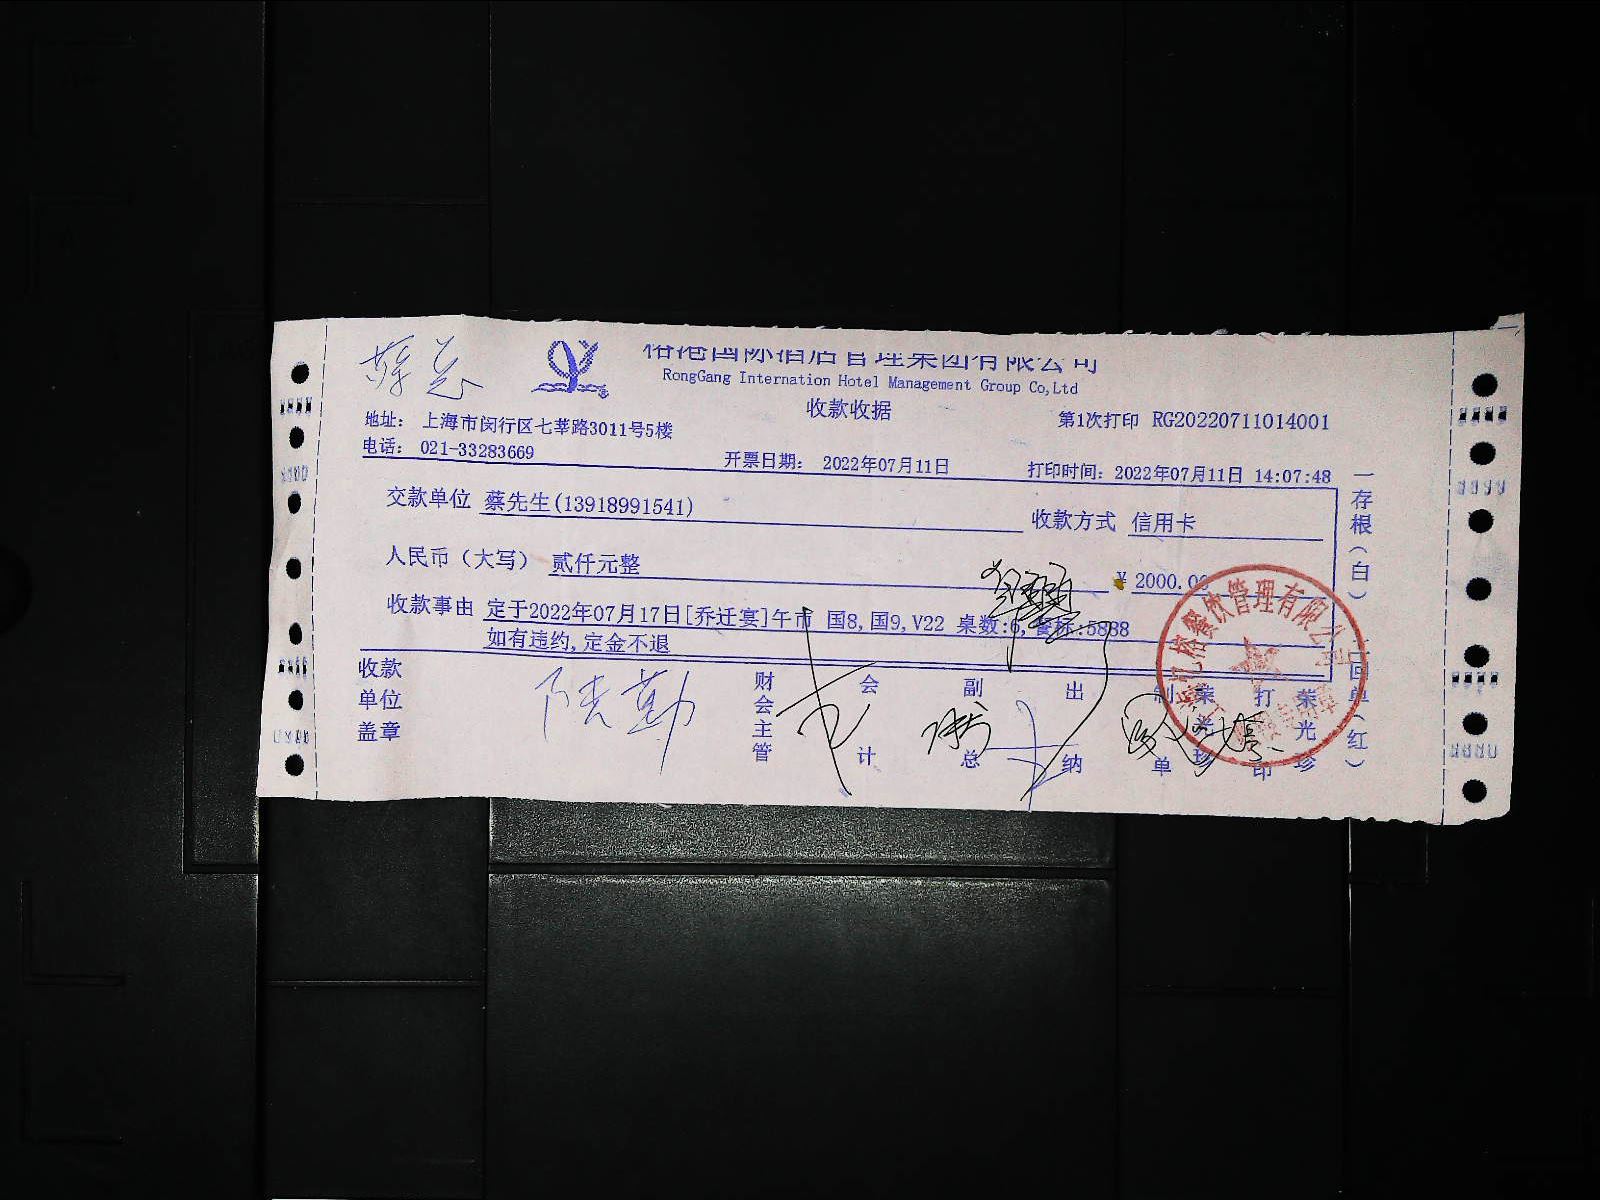 榕港国际酒店管理集团有限公司
RongGang Internation Hotel Management Group Co,Ltd
收款收据
第1次打印 RG20220711014001
地址： 上海市闵行区七莘路3011号5楼
电话： 021-33283669
开票日期： 2022年07月11日
打印时间：2022年07月11日 14:07:48
交款单位 蔡先生(13918991541)
收款方式 信用卡
人民币（大写） 贰仟元整
¥ 2000.00
收款事由 定于2022年07月17日[乔迁宴]午市 国8,国9,V22 桌数:6,餐标:5888
如有违约,定金不退
收款单位盖章
陆勤
财会主管
会计
副总
出纳
制单
荣光珍
打印
荣光珍
一存根（白）
二回单（红）